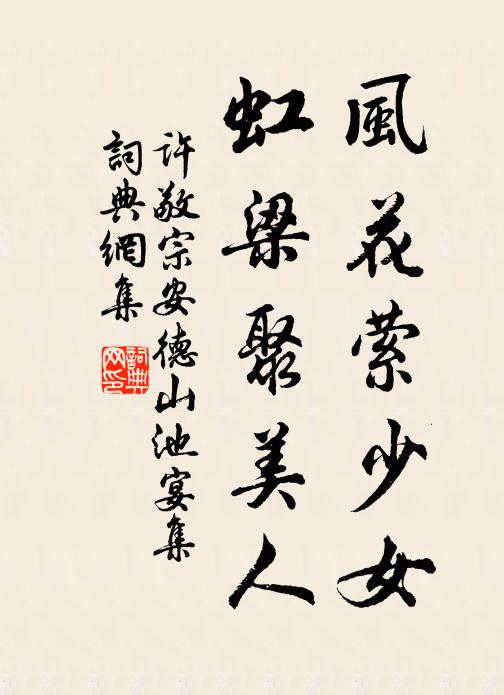 風花縈少女
虹梁聚美人
許敬宗安德山池宴集
詞典網集
詞典网印